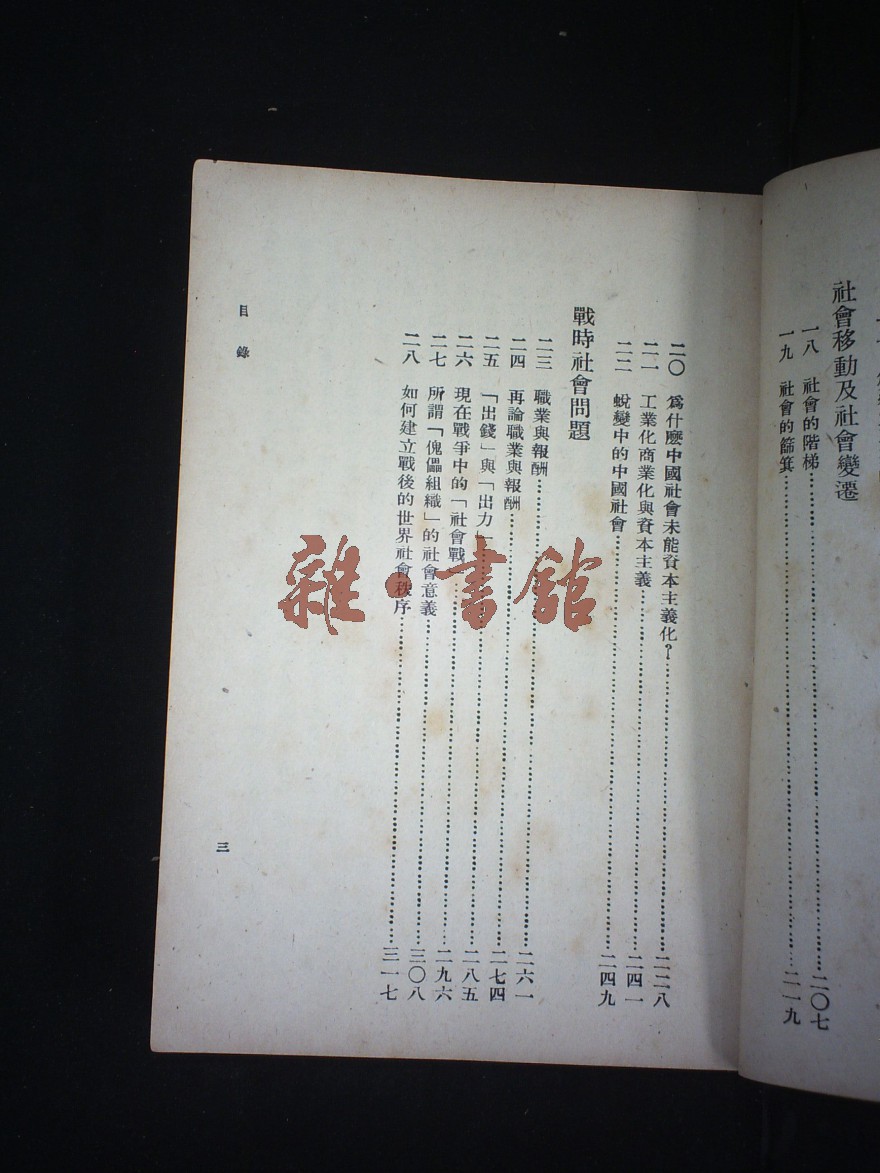 社會移動及社會變遷
一八 社會的階梯……二〇七
一九 社會的篩箕……二一九
二〇 爲什麽中國社會未能資本主義化？……二二八
二一 工業化商業化與資本主義……二四一
二二 蛻變中的中國社會……二四九
戰時社會問題
二三 職業與報酬……二六一
二四 再論職業與報酬……二七四
二五 「出錢」與「出力」……二八五
二六 現在戰爭中的「社會戰」……二九六
二七 所謂「傀儡組織」的社會意義……三〇八
二八 如何建立戰後的世界社會秩序……三一七
目錄
三
雜·書館